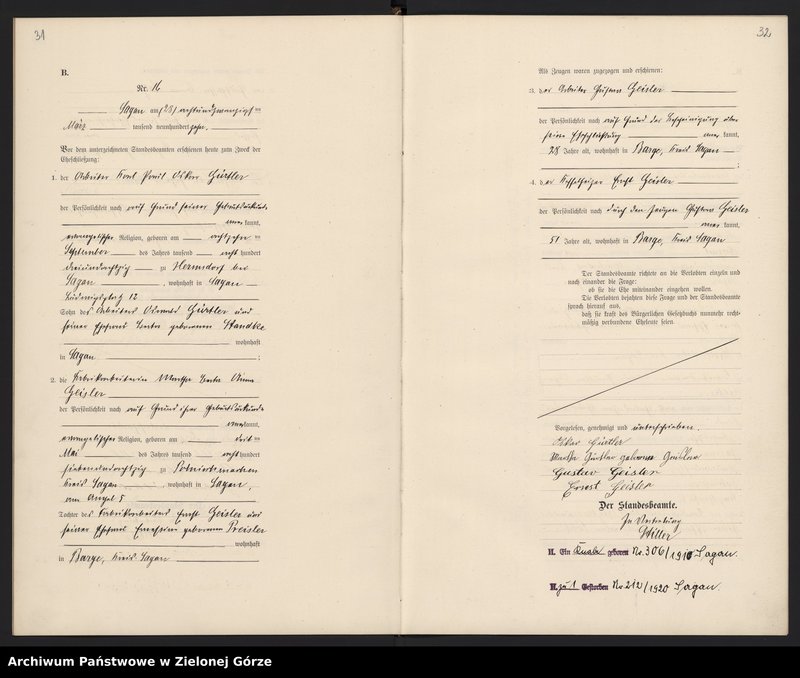 31
B.
Nr. 16
Sagan am (28) achtundzwanzigsten
März tausend neunhundertzehn,
Vor dem unterzeichneten Standesbeamten erschienen heute zum Zweck der
Eheschließung:
1. der Arbeiter Karl Paul Oskar Gürtler
der Persönlichkeit nach auf Grund seiner Geburtsurkunde
anerkannt,
evangelischer Religion, geboren am achtzehnten
September des Jahres tausend acht hundert
dreiundachtzig zu Hermsdorf bei
Sagan, wohnhaft in Sagan
Ludwigsplatz 12
Sohn des Arbeiters Oswald Gürtler und
seiner Ehefrau Berta geborenen Standke
wohnhaft
in Sagan ;
2. die Fabrikarbeiterin Martha Berta Anna
Geisler
der Persönlichkeit nach auf Grund ihrer Geburtsurkunde
anerkannt,
evangelischer Religion, geboren am dritten
Mai des Jahres tausend acht hundert
siebenundachtzig zu
Kreis Sagan, wohnhaft in Sagan,
am 5
Tochter des Fabrikarbeiters Ernst Geisler und
seiner Ehefrau Ernestine geborenen Preisler
wohnhaft
in Barge, Kreis Sagan
32
Als Zeugen waren zugezogen und erschienen:
3. der Arbeiter Gustav Geisler
der Persönlichkeit nach auf Grund der Bescheinigung über
seine Eheschließung anerkannt,
28 Jahre alt, wohnhaft in Barge, Kreis Sagan
;
4. der Kesselheizer Ernst Geisler
der Persönlichkeit nach durch den Zeugen Gustav Geisler
anerkannt,
51 Jahre alt, wohnhaft in Barge, Kreis Sagan
Der Standesbeamte richtete an die Verlobten einzeln und
nach einander die Frage:
ob sie die Ehe miteinander eingehen wollen.
Die Verlobten bejahten diese Frage und der Standesbeamte
sprach hierauf aus,
daß sie kraft des Bürgerlichen Gesetzbuchs nunmehr recht-
mäßig verbundene Eheleute seien.
Vorgelesen, genehmigt und unterschrieben.
Oskar Gürtler
Martha Gürtler geborene Geisler
Gustav Geisler
Ernst Geisler
Der Standesbeamte.
In Vertretung
Willer
II. Ein Knabe geboren Nr. 306/1910 Sagan.
II. zu 1 Gestorben Nr. 212/1920 Sagan.
Archiwum Państwowe w Zielonej Górze